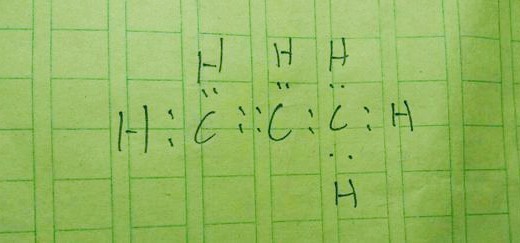 H H H
H : C :: C : C : H
H